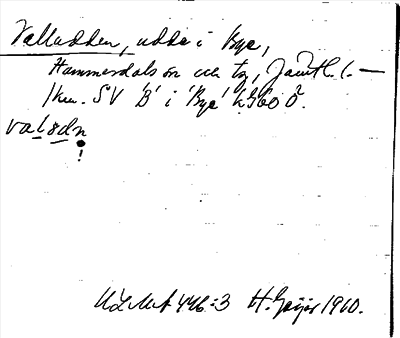 Valludden, udde i Bye,
Hammerdals sn och tg, Jämtl. l. —
1 km. SV 'B' i 'Bye' k960 Ö.
valudn
!
446:3 H. Geijer 1910.